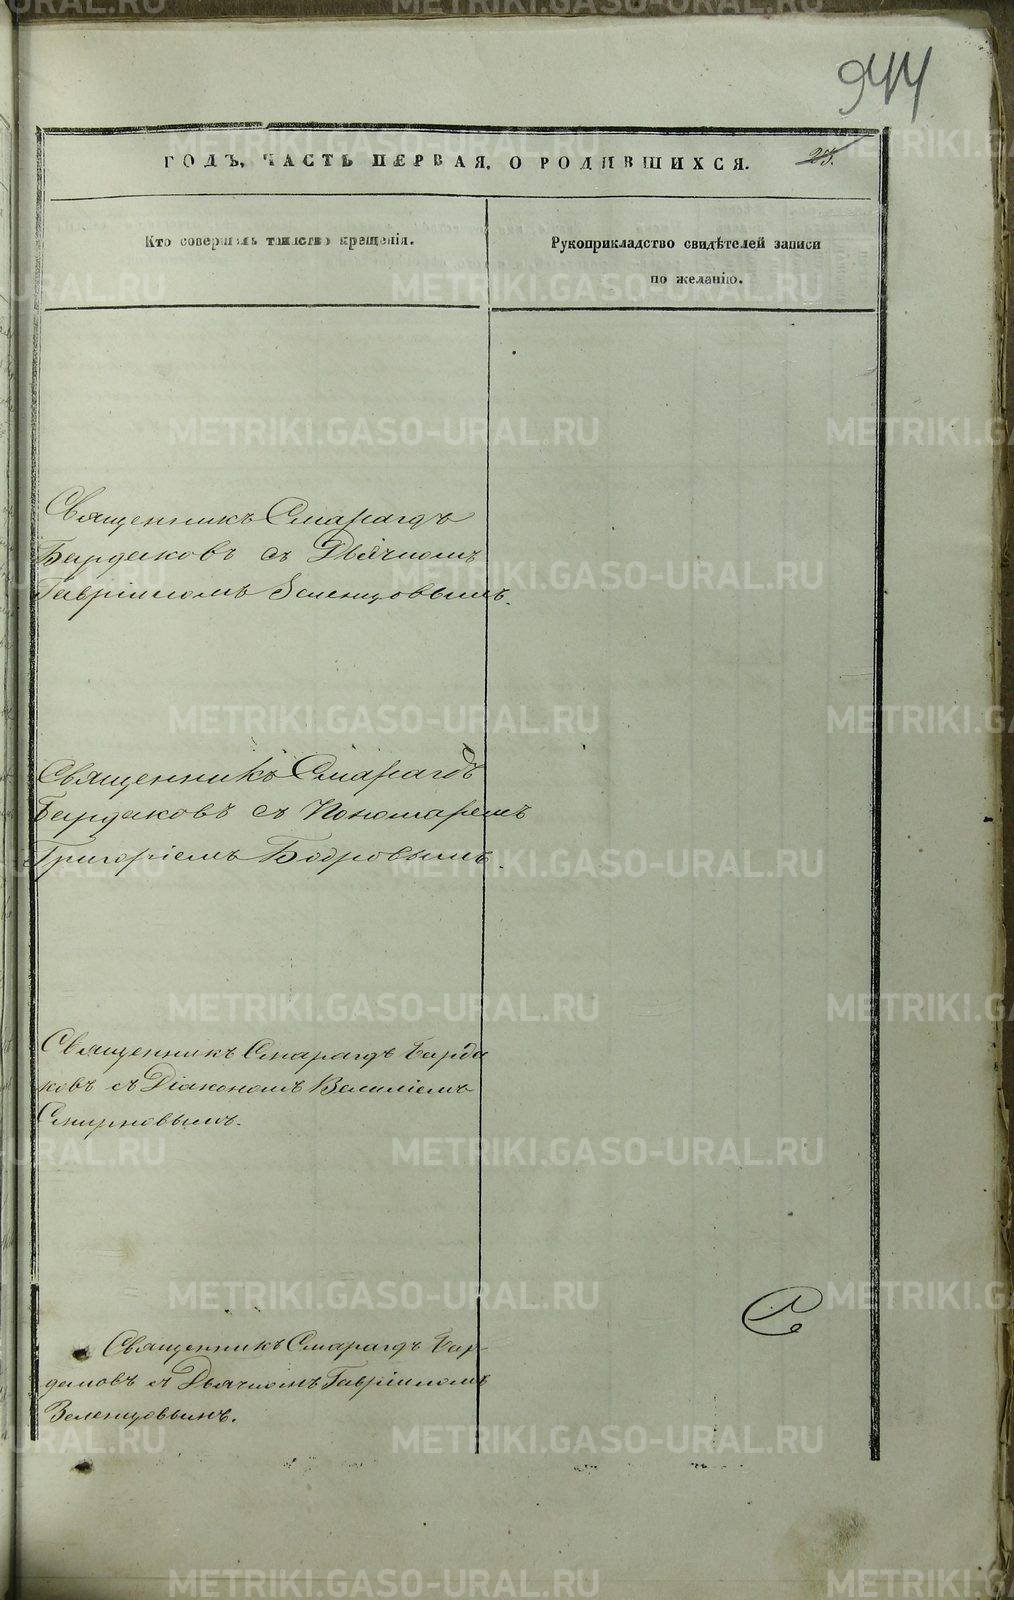 944
ГОДЪ, ЧАСТЬ ПЕРВАЯ, О РОДИВШИХСЯ.
Кто совершалъ таинство крещенія.
Рукоприкладство свидѣтелей записи
по желанію.
Священникъ Смарагдъ
Бардаковъ съ Дьячкомъ
Гавріиломъ Зеленцовымъ.
Священникъ Смарагдъ
Бардаковъ съ Пономаремъ
Григоріемъ Бобровымъ.
Священникъ Смарагдъ Барда
ковъ съ Діакономъ Василіемъ
Смирновымъ.
Священникъ Смарагдъ Бар
даковъ съ Дьячкомъ Гавріиломъ
Зеленцовымъ.
METRIKI.GASO-URAL.RU